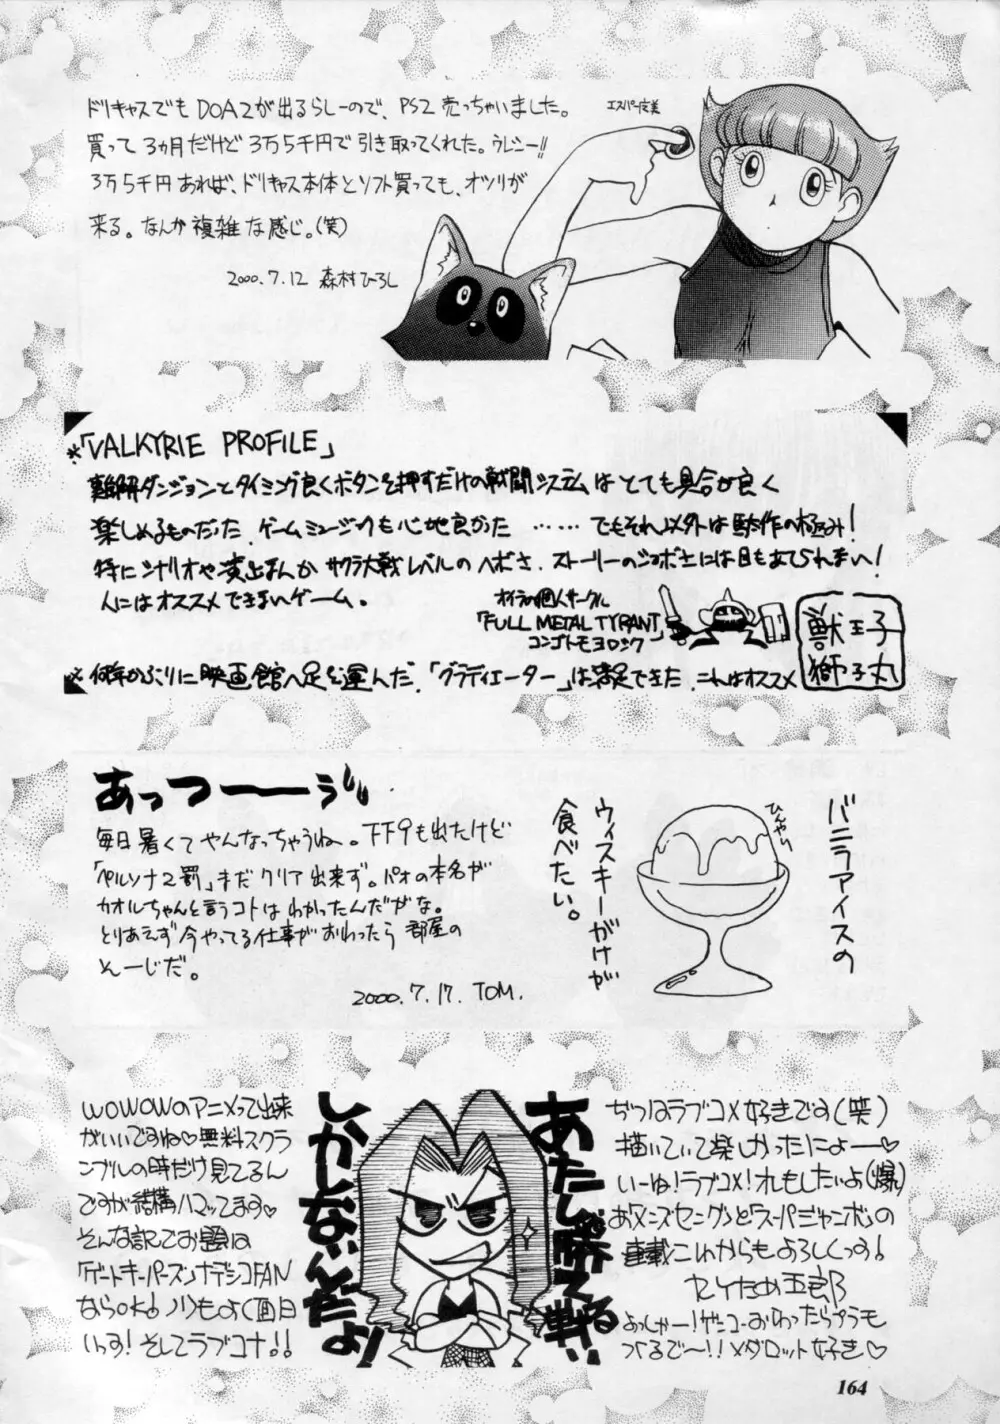 ドリキャスでもDOA2が出るらしーので、PS2売っちゃいました。
買って3ヵ月だけど3万5千円で引き取ってくれた。ウレシー!!
3万5千円あれば、ドリキャス本体とソフト買っても、オツリが
来る。なんか複雑な感じ。(笑)
2000.7.12 森村ひろし
エスパー
※「VALKYRIE PROFILE」
難解ダンジョンとタイミング良くボタンを押すだけの戦闘システムはとても具合が良く
楽しめるものだった。ゲームミュージックも心地良かった ……でもそれ以外は駄作の極み!
特にシナリオや演出なんかサクラ大戦レベルのヘボさ、ストーリーのショボさには目もあてられない!
人にはオススメできないゲーム。
オイラの個人サークル
「FULL METAL TYRANT」
コンゴトモヨロシク
獣王子
獅子丸
※何年かぶりに映画館へ足を運んだ。「グラディエーター」は満足できた。これはオススメ
あっつーーぅ"
毎日暑くてやんなっちゃうね。FF9も出たけど
「ペルソナ2罰」まだクリア出来ず。パオの本名が
カオルちゃんと言うコトはわかったんだがな。
とりあえず今やってる仕事がおわったら部屋の
そーじだ。
2000.7.17. TOM.
バニラアイスの
ウィスキーがけが
食べたい。
ひんやり
あたし勝てる戦い
しかしないんだよ!
ぢつはラブコメ好きです(笑)
描いていて楽しかったにょー♡
いーね!ラブコメ!オレもしたいよ(爆)
連載これからもよろしくっす!
セイため五郎
よっしゃー!ザンコーおわったらプラモ
つくるで〜!!メダロット好き♡
WOWOWのアニメって出来
がいいですね♡無料スクラ
ンブルの時だけ見てるん
ですが結構ハマってます♡
そんな訳でお題は
「ゲートキーパーズ」ナデシコFAN
ならOK! ノリもよく面白
いっす! そしてラブコメ!!
164